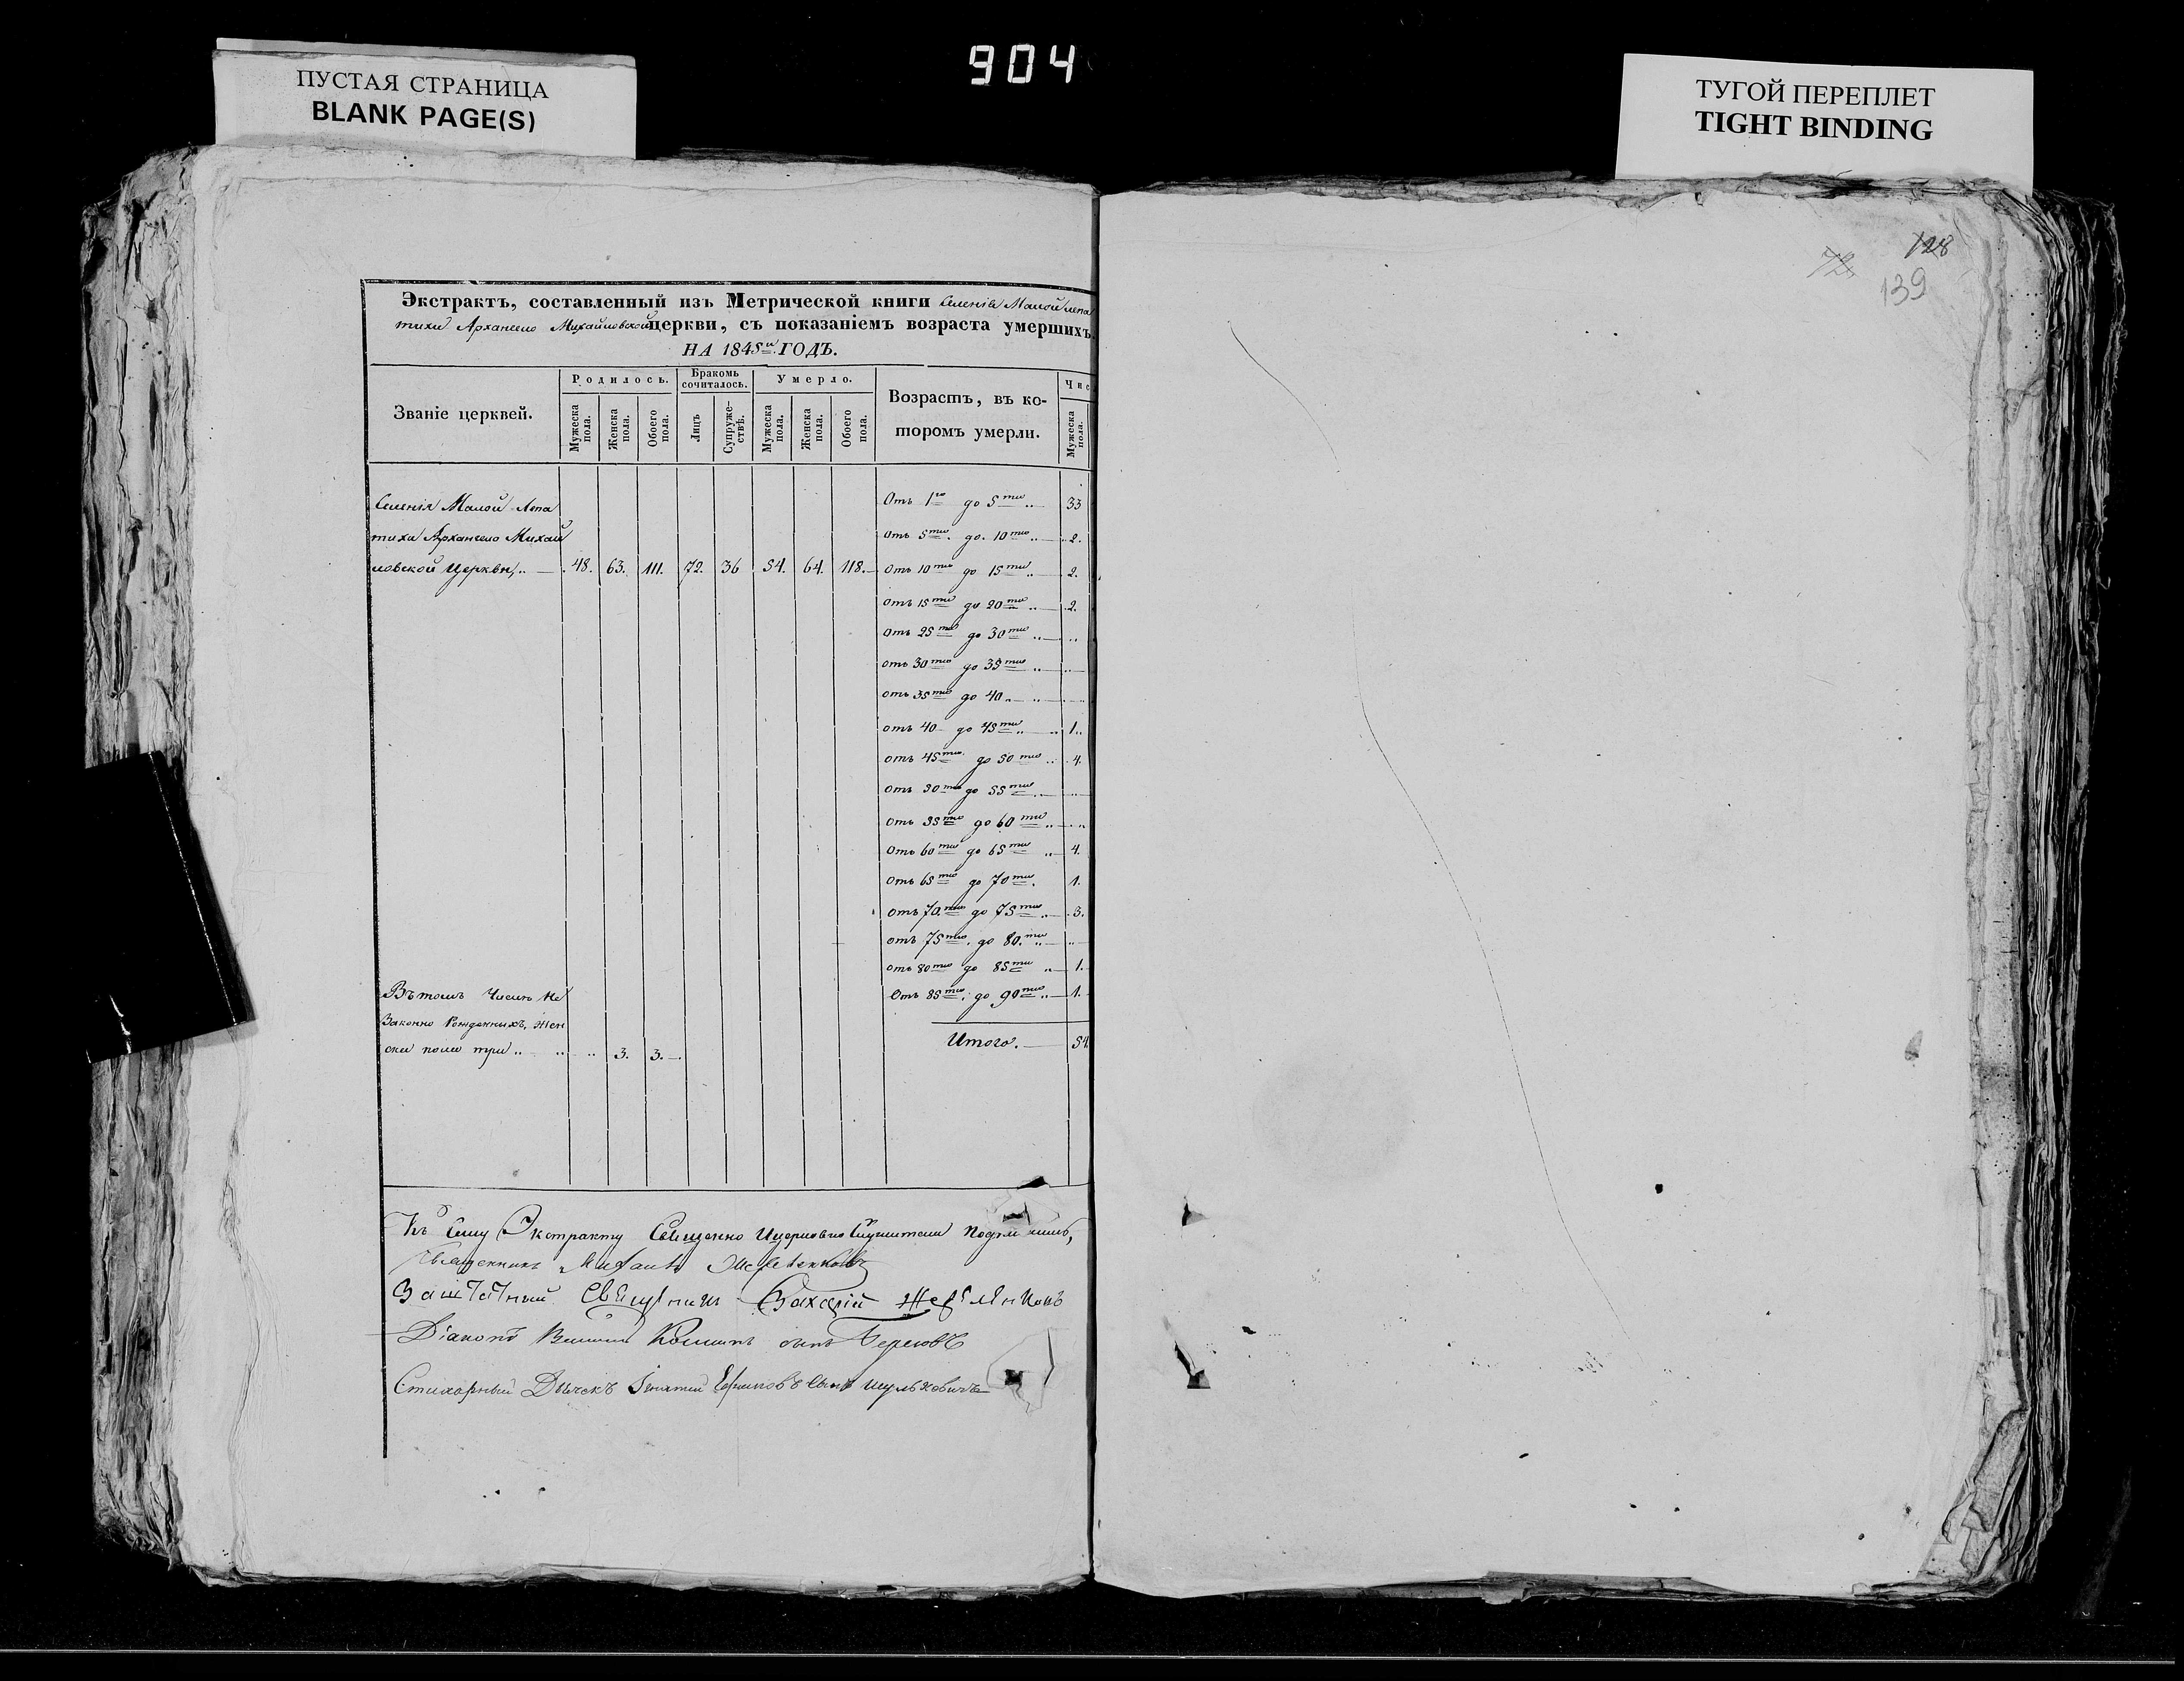 904
ПУСТАЯ СТРАНИЦА
BLANK PAGE(S)
ТУГОЙ ПЕРЕПЛЕТ
TIGHT BINDING
72
128
139
Экстрактъ, составленный изъ Метрической книги Селенія Малой лепа
тихи Архангело Михайловской церкви, съ показаніемъ возраста умершихъ.
НА 1845й ГОДЪ.
Званіе церквей.
Родилось.
Бракомъ сочиталось.
Умерло.
Возрастъ, въ ко-
торомъ умерли.
Чис
Мужеска пола.
Женска пола.
Обоего пола.
Лицъ
Супруже-ствъ.
Мужеска пола.
Женска пола.
Обоего пола.
Мужеска пола.
Селенія Малой Лепа
тиха Архангело Михай
ловской Церкви,.. 48. 63. 111. 72. 36 54. 64. 118.
Отъ 1го до 5ти .. 33
отъ 5ти. до. 10ти .. 2.
отъ 10ти до 15ти .. 2.
отъ 15ти до 20ти .. 2.
отъ 25ти до 30ти .. ..
отъ 30ти до 35ти .. ..
отъ 35ти до 40 .. ..
отъ 40 до 45ти .. 1..
отъ 45ти. до 50ти .. 4.
отъ 50ти до 55ти .. ..
отъ 55ти до 60ти .. ..
отъ 60ти до 65ти .. 4.
отъ 65ти до 70ти. 1.
отъ 70.ти до 75ти .. 3.
отъ 75ти. до 80.ти .. ..
отъ 80ти до 85ти .. 1.
Отъ 85ти. до 90ти .. 1.
Итого. 54.
Въ томъ Числѣ не
Законно Рожденныхъ, жен
ска пола три .. .. .. 3. 3.
Къ Сему Экстракту Священно Церковно Служители
Священникъ Михаилъ
Заштатный Священникъ Захарій
Діаконъ сынъ
Стихарный Дьячекъ Игнатий Ефимовъ Сынъ